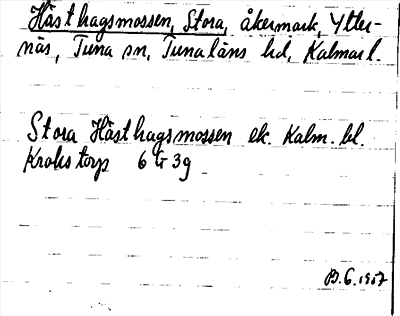 Hästhagsmossen, Stora, åkermark, Ytter-
näs, Tuna sn, Tunaläns hd, Kalmar l.
Stora Hästhagsmossen ek. Kalm. bl.
Krokstorp 6 G 3g
B.G. 1957